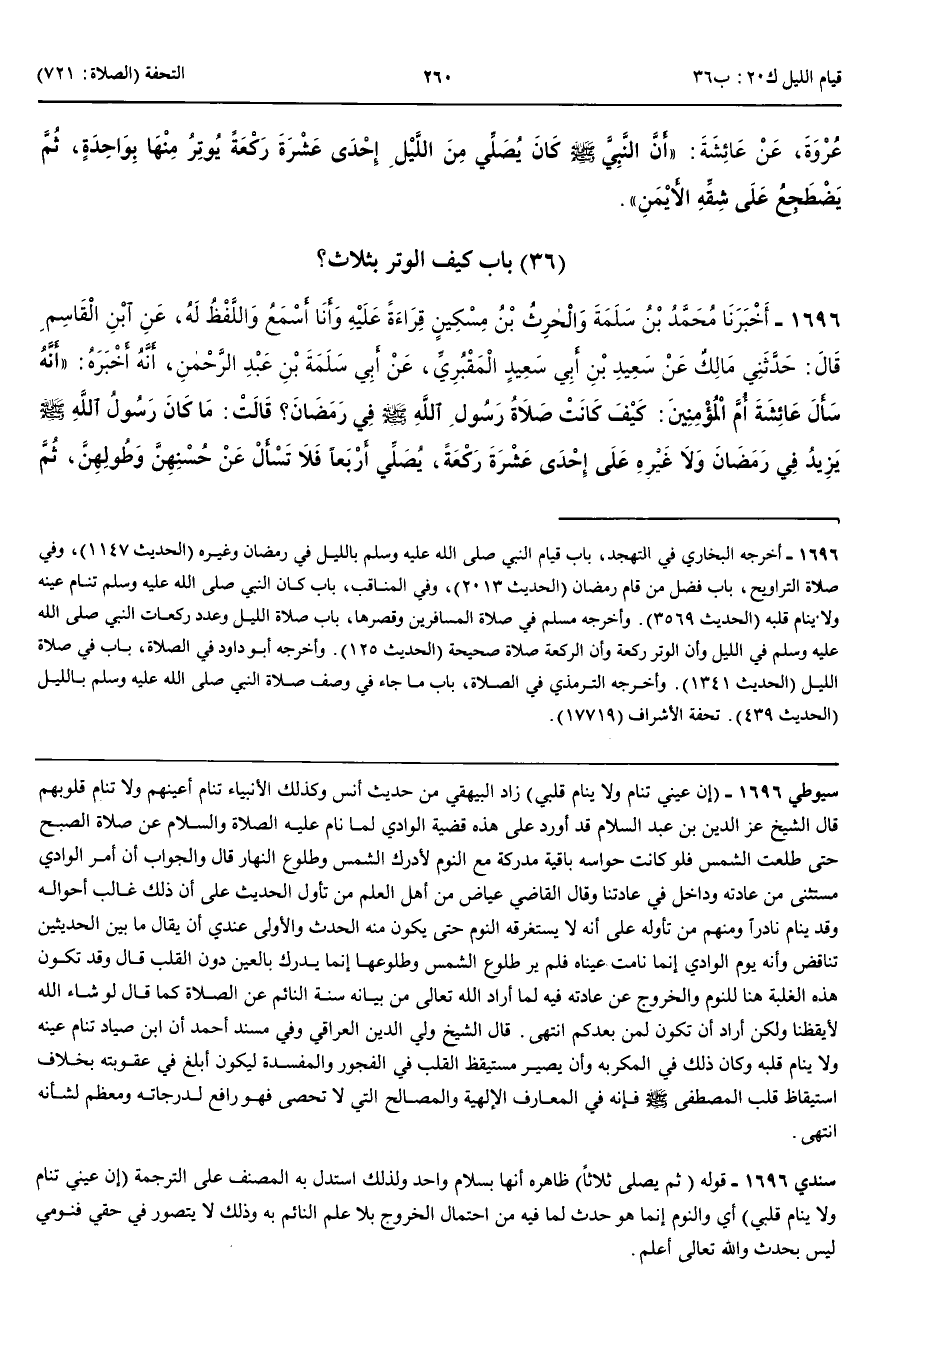 قيام الليل ك٢٠: ب٣٦ ٢٦٠ التحفة (الصلاة: ٧٢١)
عُرْوَةَ، عَنْ عَائِشَةَ: «أَنَّ النَّبِيَّ ﷺ كَانَ يُصَلِّي مِنَ اللَّيْلِ إِحْدَى عَشْرَةَ رَكْعَةً يُوتِرُ مِنْهَا بِوَاحِدَةٍ، ثُمَّ
يَضْطَجِعُ عَلَى شِقِّهِ الأَيْمَنِ».
(٣٦) باب كيف الوتر بثلاث؟
١٦٩٦ ـ أَخْبَرَنَا مُحَمَّدُ بْنُ سَلَمَةَ وَالْحٰرِثُ بْنُ مِسْكِينٍ قِرَاءَةً عَلَيْهِ وَأَنَا أَسْمَعُ وَاللَّفْظُ لَهُ، عَنِ ٱبْنِ الْقَاسِمِ
قَالَ: حَدَّثَنِي مَالِكٌ عَنْ سَعِيدِ بْنِ أَبِي سَعِيدٍ الْمَقْبُرِيِّ، عَنْ أَبِي سَلَمَةَ بْنِ عَبْدِ الرَّحْمٰنِ، أَنَّهُ أَخْبَرَهُ: «أَنَّهُ
سَأَلَ عَائِشَةَ أُمَّ الْمُؤْمِنِينَ: كَيْفَ كَانَتْ صَلَاةُ رَسُولِ ٱللَّهِ ﷺ فِي رَمَضَانَ؟ قَالَتْ: مَا كَانَ رَسُولُ ٱللَّهِ ﷺ
يَزِيدُ فِي رَمَضَانَ وَلَا غَيْرِهِ عَلَى إِحْدَى عَشْرَةَ رَكْعَةً، يُصَلِّي أَرْبَعاً فَلَا تَسْأَلْ عَنْ حُسْنِهِنَّ وَطُولِهِنَّ، ثُمَّ
١٦٩٦ ـ أخرجه البخاري في التهجد، باب قيام النبي صلى الله عليه وسلم بالليل في رمضان وغيره (الحديث ١١٤٧)، وفي
صلاة التراويح، باب فضل من قام رمضان (الحديث ٢٠١٣)، وفي المناقب، باب كان النبي صلى الله عليه وسلم تنام عينه
ولا ينام قلبه (الحديث ٣٥٦٩). وأخرجه مسلم في صلاة المسافرين وقصرها، باب صلاة الليل وعدد ركعات النبي صلى الله
عليه وسلم في الليل وأن الوتر ركعة وأن الركعة صلاة صحيحة (الحديث ١٢٥). وأخرجه أبو داود في الصلاة، باب في صلاة
الليل (الحديث ١٣٤١). وأخرجه الترمذي في الصلاة، باب ما جاء في وصف صلاة النبي صلى الله عليه وسلم بالليل
(الحديث ٤٣٩). تحفة الأشراف (١٧٧١٩).
سيوطي ١٦٩٦ ـ (إن عيني تنام ولا ينام قلبي) زاد البيهقي من حديث أنس وكذلك الأنبياء تنام أعينهم ولا تنام قلوبهم
قال الشيخ عز الدين بن عبد السلام قد أورد على هذه قضية الوادي لما نام عليه الصلاة والسلام عن صلاة الصبح
حتى طلعت الشمس فلو كانت حواسه باقية مدركة مع النوم لأدرك الشمس وطلوع النهار قال والجواب أن أمر الوادي
مستثنى من عادته وداخل في عادتنا وقال القاضي عياض من أهل العلم من تأول الحديث على أن ذلك غالب أحواله
وقد ينام نادراً ومنهم من تأوله على أنه لا يستغرقه النوم حتى يكون منه الحدث والأولى عندي أن يقال ما بين الحديثين
تناقض وأنه يوم الوادي إنما نامت عيناه فلم ير طلوع الشمس وطلوعها إنما يدرك بالعين دون القلب قال وقد تكون
هذه الغلبة هنا للنوم والخروج عن عادته فيه لما أراد الله تعالى من بيانه سنة النائم عن الصلاة كما قال لو شاء الله
لأيقظنا ولكن أراد أن تكون لمن بعدكم انتهى. قال الشيخ ولي الدين العراقي وفي مسند أحمد أن ابن صياد تنام عينه
ولا ينام قلبه وكان ذلك في المكربه وأن يصير مستيقظ القلب في الفجور والمفسدة ليكون أبلغ في عقوبته بخلاف
استيقاظ قلب المصطفى ﷺ فإنه في المعارف الإلهية والمصالح التي لا تحصى فهو رافع لدرجاته ومعظم لشأنه
انتهى.
سندي ١٦٩٦ ـ قوله ( ثم يصلى ثلاثاً) ظاهره أنها بسلام واحد ولذلك استدل به المصنف على الترجمة (إن عيني تنام
ولا ينام قلبي) أي والنوم إنما هو حدث لما فيه من احتمال الخروج بلا علم النائم به وذلك لا يتصور في حقي فنومي
ليس بحدث والله تعالى أعلم.